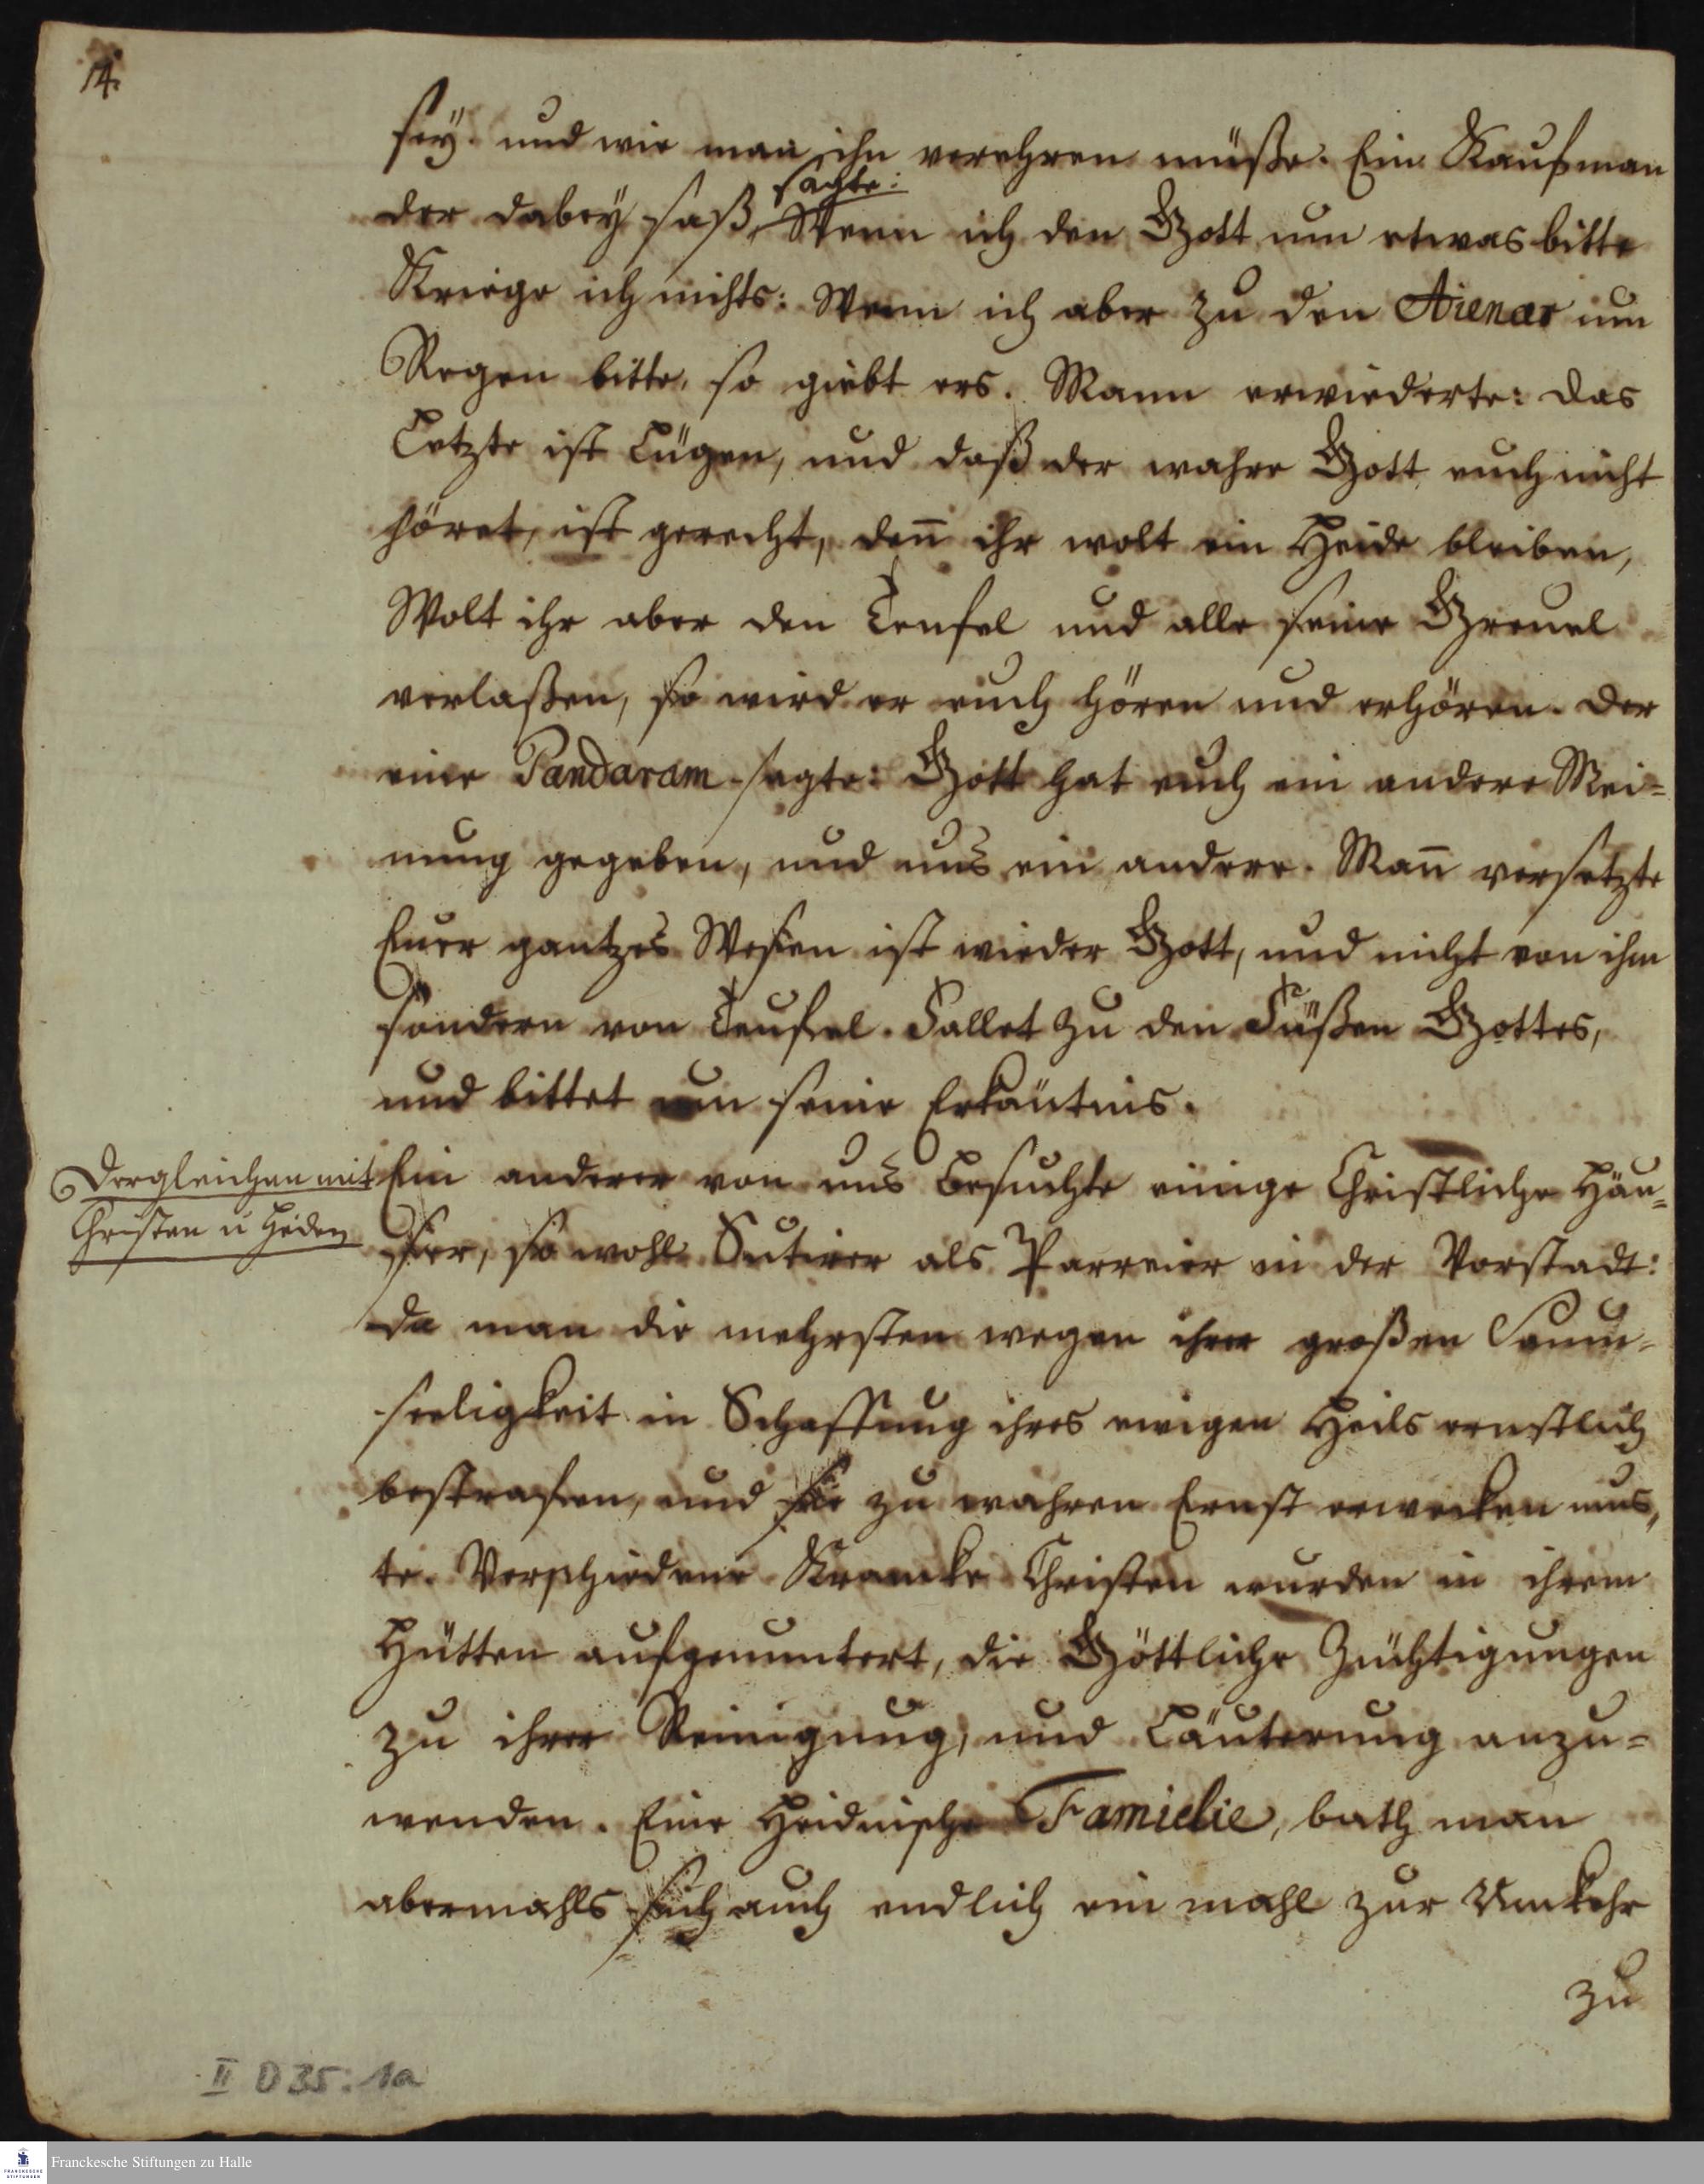 14.
sey. und wie man ihn verehren müße. Ein Kaufman
sagte:
der dabey saß, Wenn ich den Gott um etwas bitte
Kriege ich nichts: Wenn ich aber zu den Aienar um
Regen bitte, so giebt ers. Mann erwiederte: das
Letzte ist Lügen, und daß der wahre Gott euch nicht
höret, ist gerecht, deñ ihr wolt ein Heide bleiben,
Wolt ihr aber den Teufel und alle seine Greuel
verlaßen, so wird er euch hören und erhören. Der
eine Pandaram sagte: Gott hat euch ein andere Mei=
nung gegeben, und uns ein andere. Mañ versetzte
Euer gantzes Wesen ist wieder Gott, und nicht von ihm
sondern von Teufel. Fallet zu den Füßen Gottes,
und bittet um seine Erkäntnis.
Dergleichen mit
Christen u Heiden
Ein anderer von uns besuchte einige Christliche Häu=
ser, so wohl Sutirer als Parreier in der Vorstadt:
da man die mehrsten wegen ihrer großen Saum=
seeligkeit in Schaffung ihres ewigen Heils ernstlich
bestrafen, und sie zu wahren Ernst erwecken mus,
te. Verschiedene Krancke Christen wurden in ihrem
Hütten aufgemuntert, die Göttliche Züchtigungen
zu ihrer Reinigung, und Läuterung anzu=
wenden. Eine Heidnische Famielie, bath man
abermahls sich auch endlich ein mahl zur Umkehr
zu
II D 35: 1a
Franckesche Stiftungen zu Halle